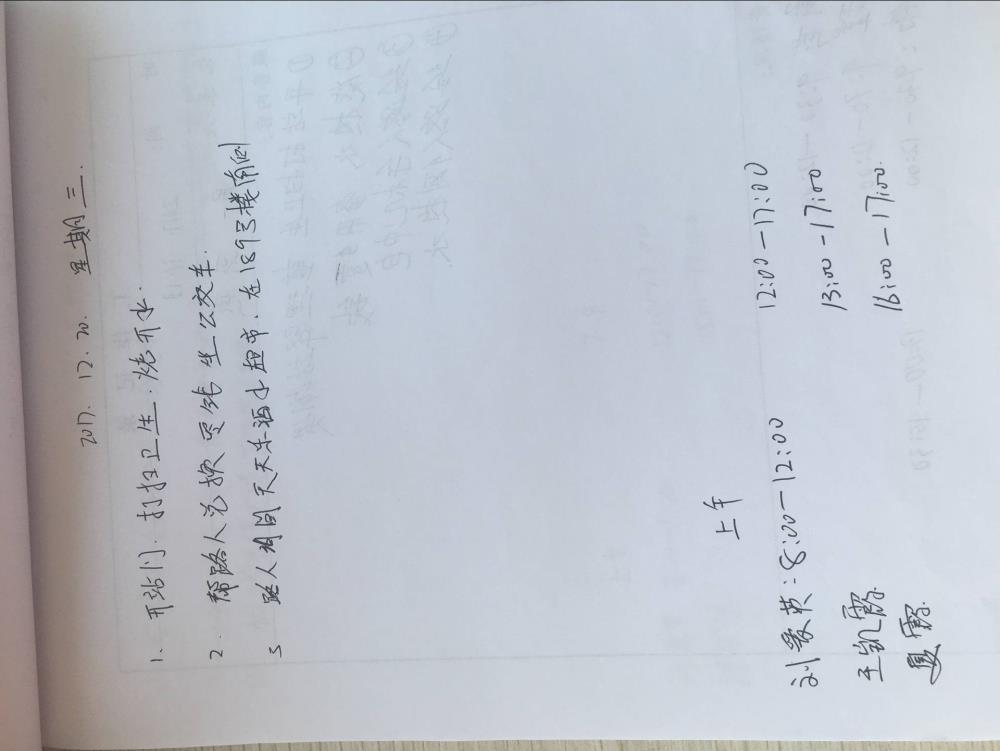 2017. 12. 20. 星期三.
1. 开站门. 打扫卫生. 烧开水.
2. 帮路人兑换零钱坐公交车.
3 路人询问天天乐海小超市. 在189号楼南侧
上午
刘爱英: 8:00-12:00 12:00-17:00
王凯霞 13:00-17:00
夏霞 16:00-17:00.